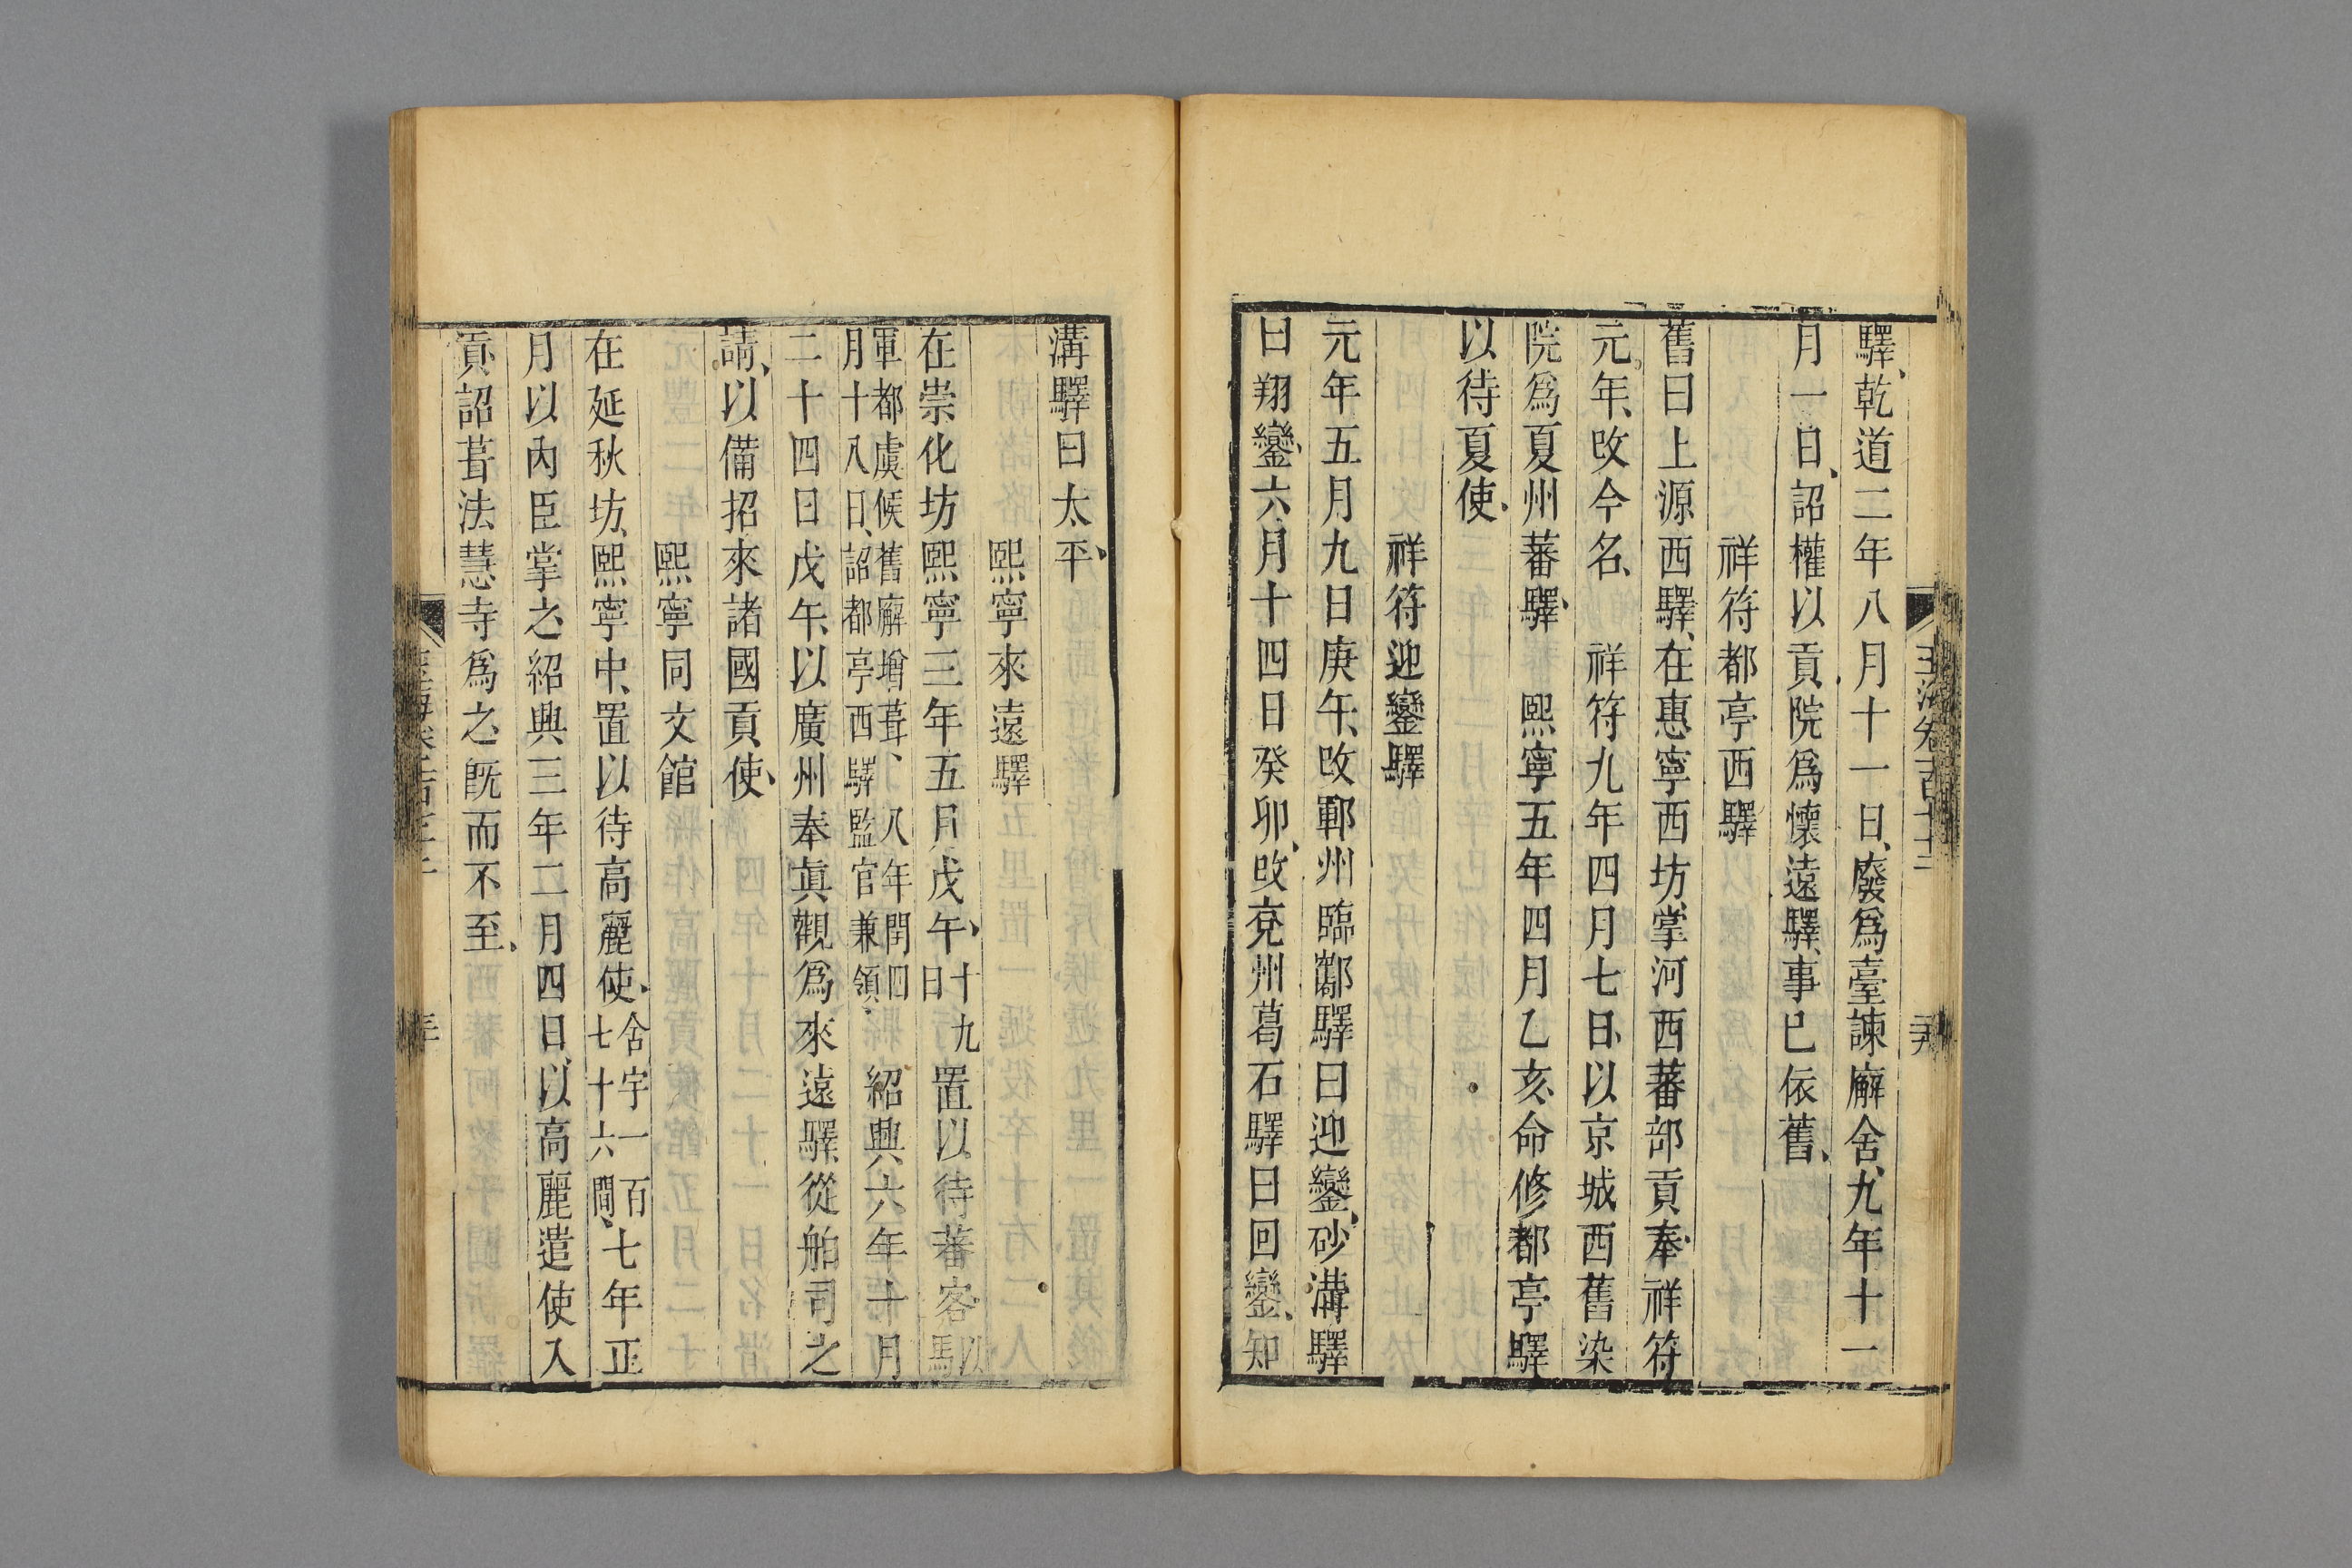 驛乾道二年八月十一日廢爲臺諫廨舍九年十一
月一日詔權以貢院爲懷遠驛事已依舊
祥符都亭西驛
舊曰上源西驛在惠寧西坊掌河西蕃部貢奉祥符
元年攺今名　祥符九年四月七日以京城西舊染
院爲夏州蕃驛　熙寧五年四月乙亥命修都亭驛
以待夏使
祥符迎鑾驛
元年五月九日庚午攺鄆州臨鄰驛曰迎鑾砂溝驛
曰翔鑾六月十四日癸卯攺兖州葛石驛曰回鑾知
溝驛曰太平
熙寧來遠驛
在崇化坊熙寧三年五月戊午十九日置以待蕃客以馹
軍都虞候舊廨增葺八年閏四
月十八日詔都亭西驛監官兼領紹興六年十月
二十四日戊午以廣州奉眞觀爲來遠驛從舶司之
請以備招來諸國貢使
熙寧同文館
在延秋坊熙寧中置以待高麗使舍宇一百七十六間七年正
月以內臣掌之紹興三年二月四日以高麗遣使入
貢詔葺法慧寺爲之旣而不至